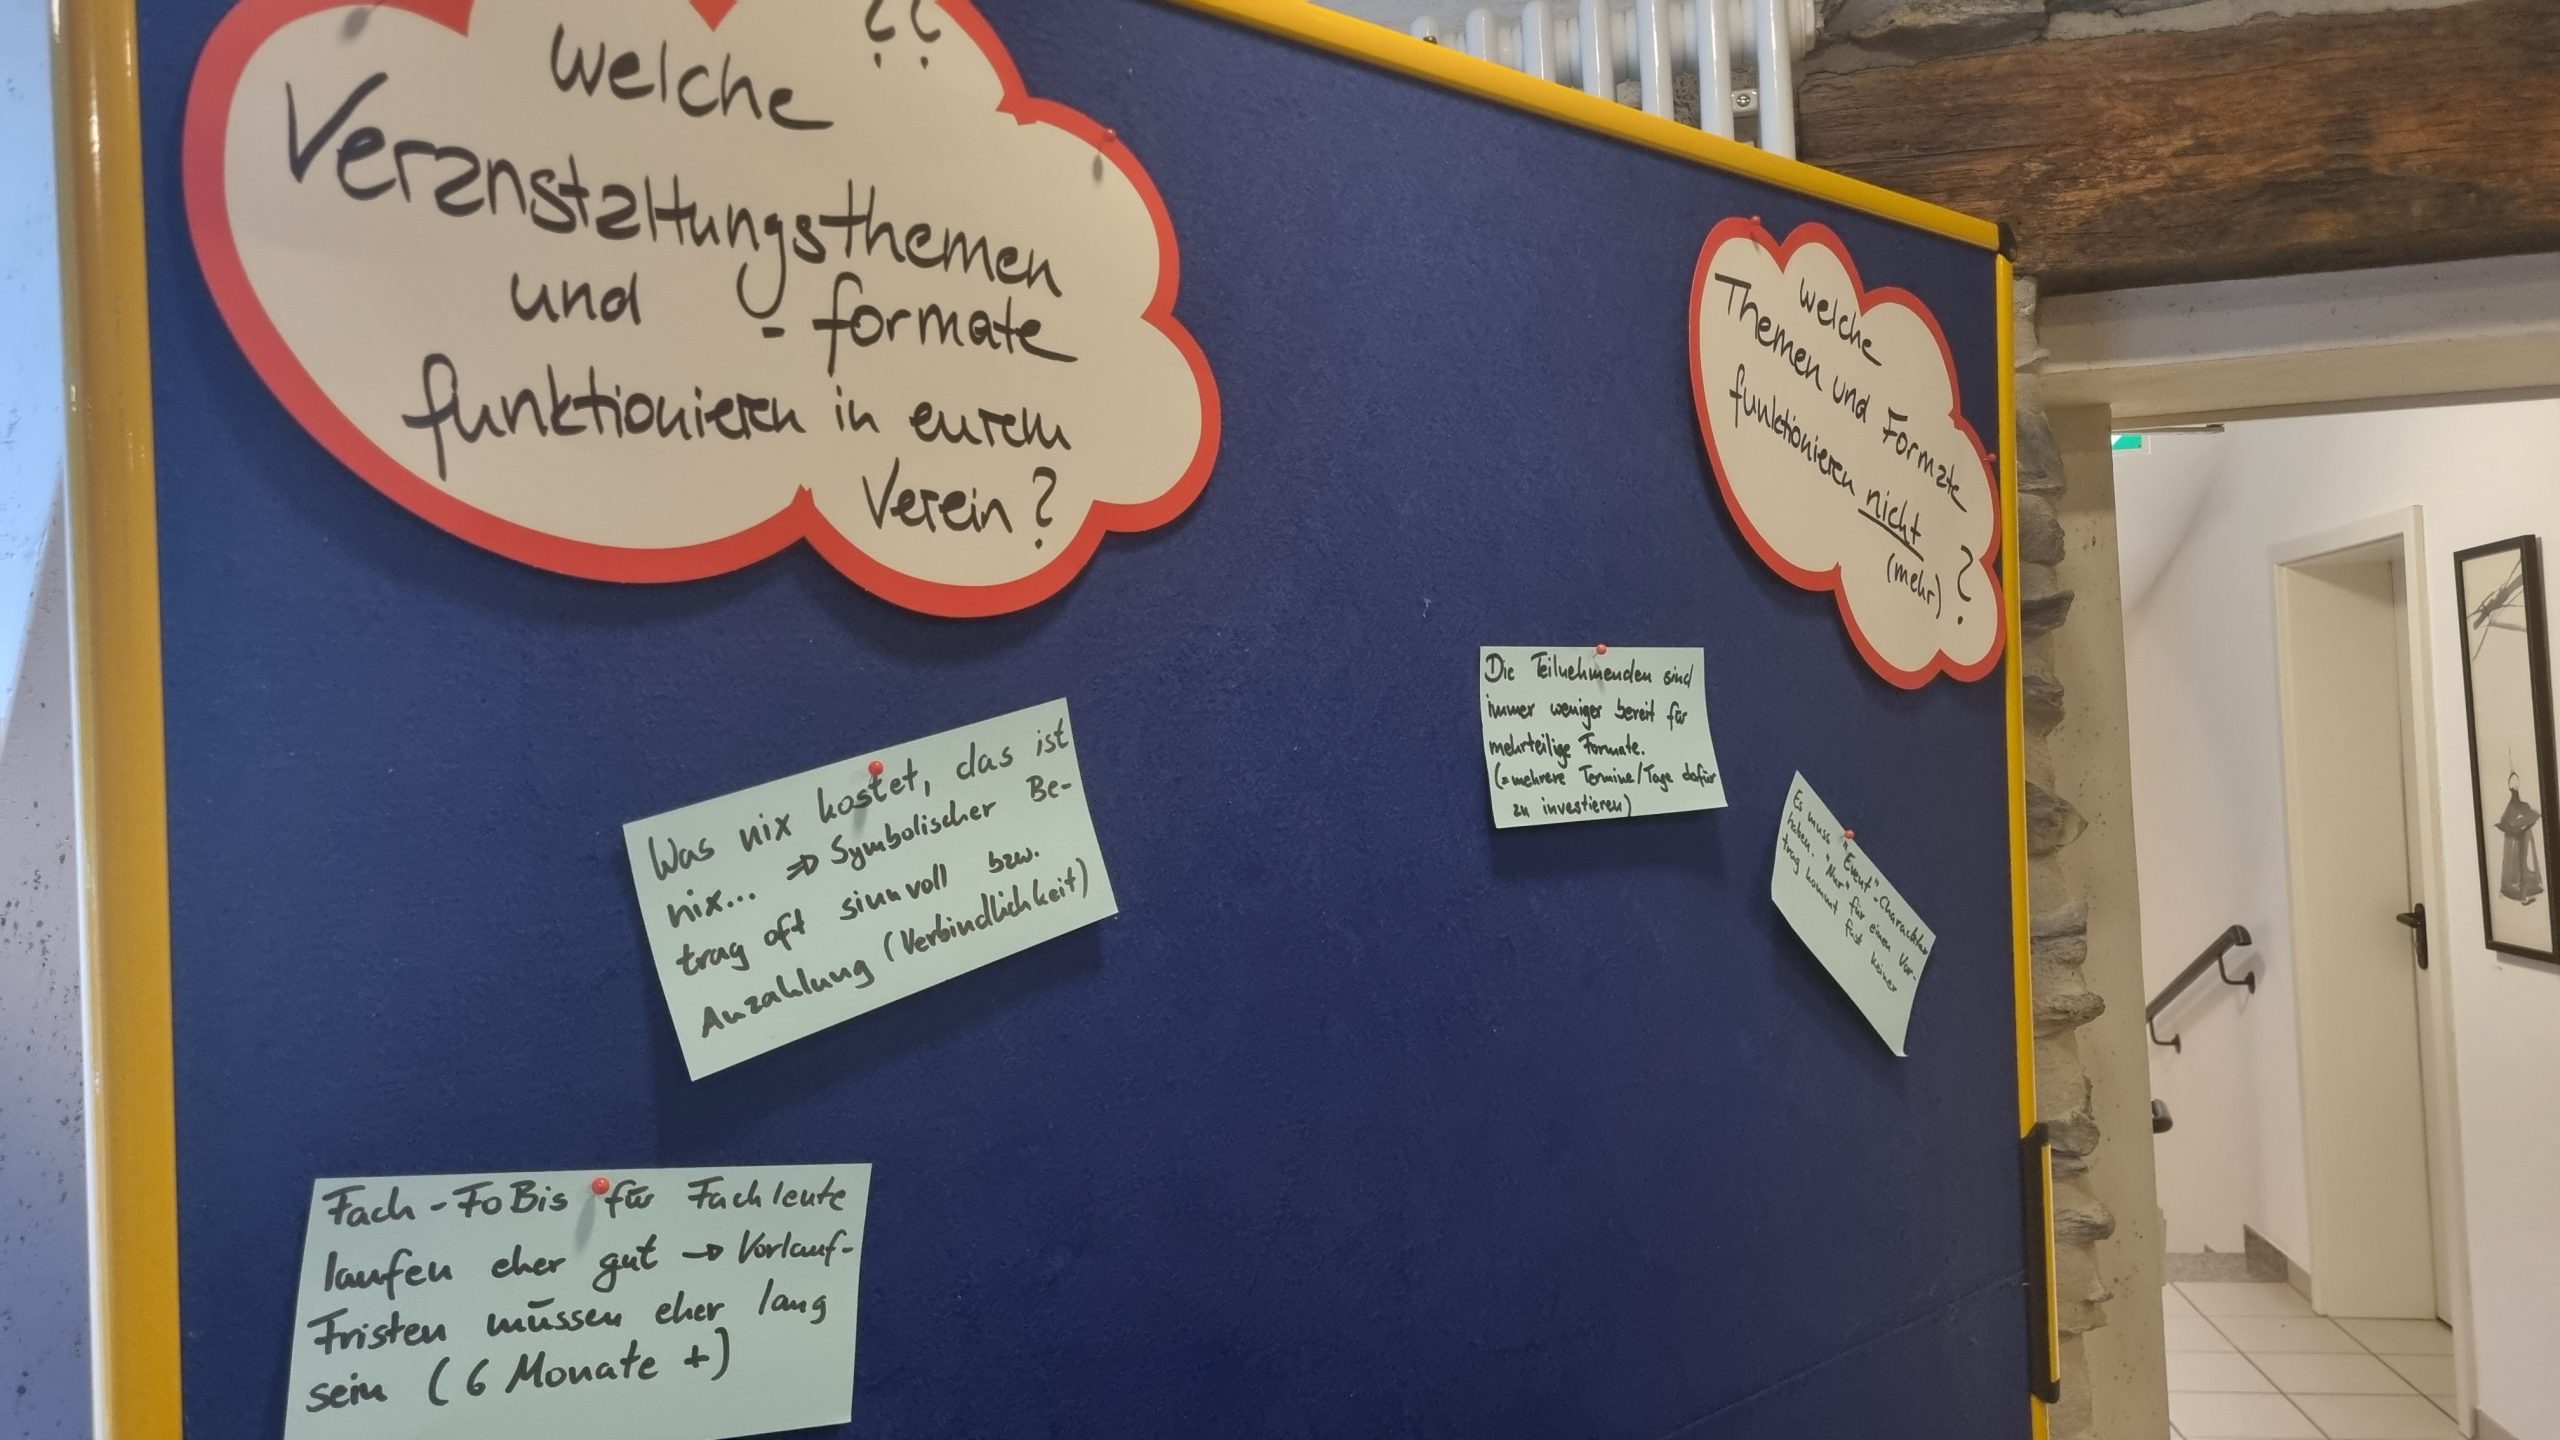 ??
Welche
Veranstaltungsthemen
und -formate
funktionieren in eurem
Verein?
Was nix kostet, das ist
nix... => Symbolischer Be-
trag oft sinnvoll bzw.
Anzahlung (Verbindlichkeit)
Fach-FoBis für Fachleute
laufen eher gut → Vorlauf-
Fristen müssen eher lang
sein (6 Monate +)
Welche
Themen und Formate
funktionieren nicht
(mehr) ?
Die Teilnehmenden sind
immer weniger bereit für
mehrteilige Formate.
(=mehrere Termine/Tage dafür
zu investieren)
Es muss "Event"-Charackter
haben. "Nur" für einen Vor-
trag kommt fast keiner